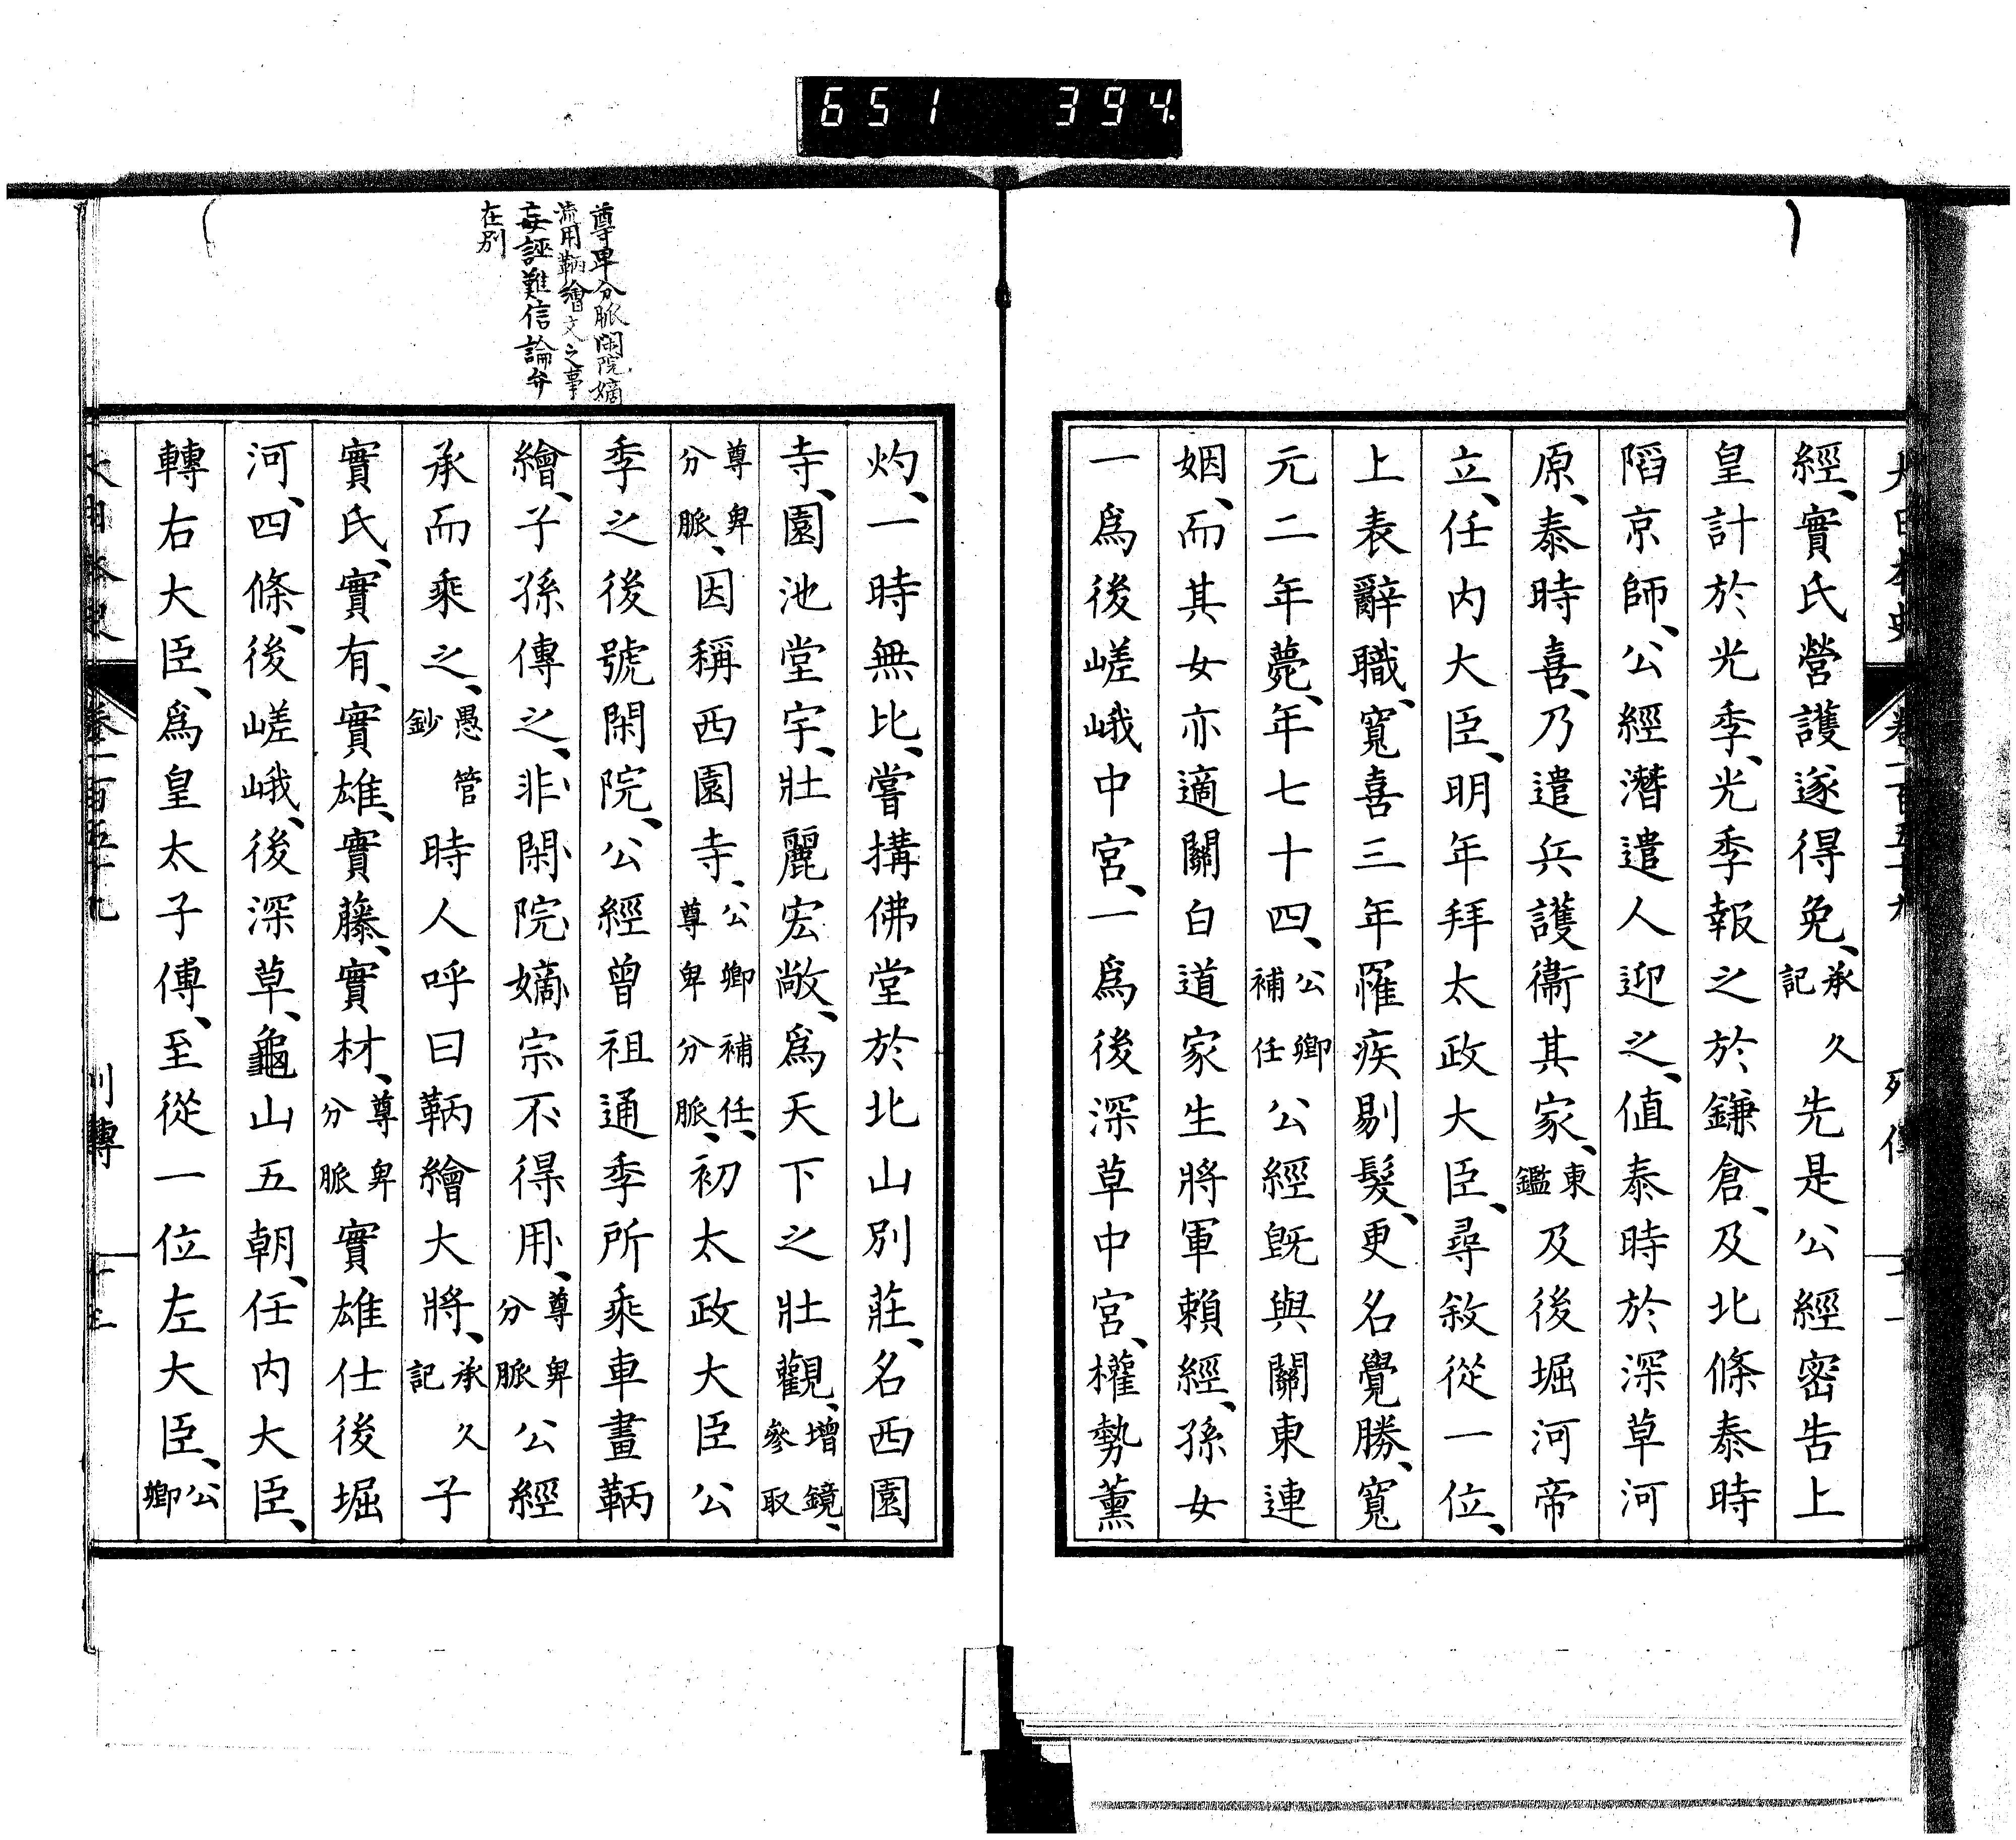 651 394
大日本史 卷一百五十九 列傳
經、實氏營護遂得免、承久記先是公經密告上
皇計於光季、光季報之於鎌倉、及北條泰時
陷京師、公經潛遣人迎之、値泰時於深草河
原、泰時喜、乃遣兵護衞其家、東鑑及後堀河帝
立、任内大臣、明年拜太政大臣、尋敘從一位、
上表辭職、寬喜三年罹疾剔髮、更名覺勝、寬
元二年薨、年七十四、公卿補任公經既與關東連
姻、而其女亦適關白道家生將軍賴經、孫女
一爲後嵯峨中宮、一爲後深草中宮、權勢薰
尊卑分脈閑院嫡
流用鞆繪文之事
妄誣難信論弁
在別
灼、一時無比、嘗搆佛堂於北山別莊、名西園
寺、園池堂宇、壯麗宏敞、爲天下之壯觀、增鏡、參取
尊卑分脈、因稱西園寺、公卿補任、尊卑分脈、初太政大臣公
季之後號閑院、公經曾祖通季所乘車畫鞆
繪、子孫傳之、非閑院嫡宗不得用、尊卑分脈公經
承而乘之、愚管鈔時人呼曰鞆繪大將、承久記子
實氏、實有、實雄、實藤、實材、尊卑分脈實雄仕後堀
河、四條、後嵯峨、後深草、龜山五朝、任内大臣、
轉右大臣、爲皇太子傅、至從一位左大臣、公卿
大日本史 卷一百五十九 列傳